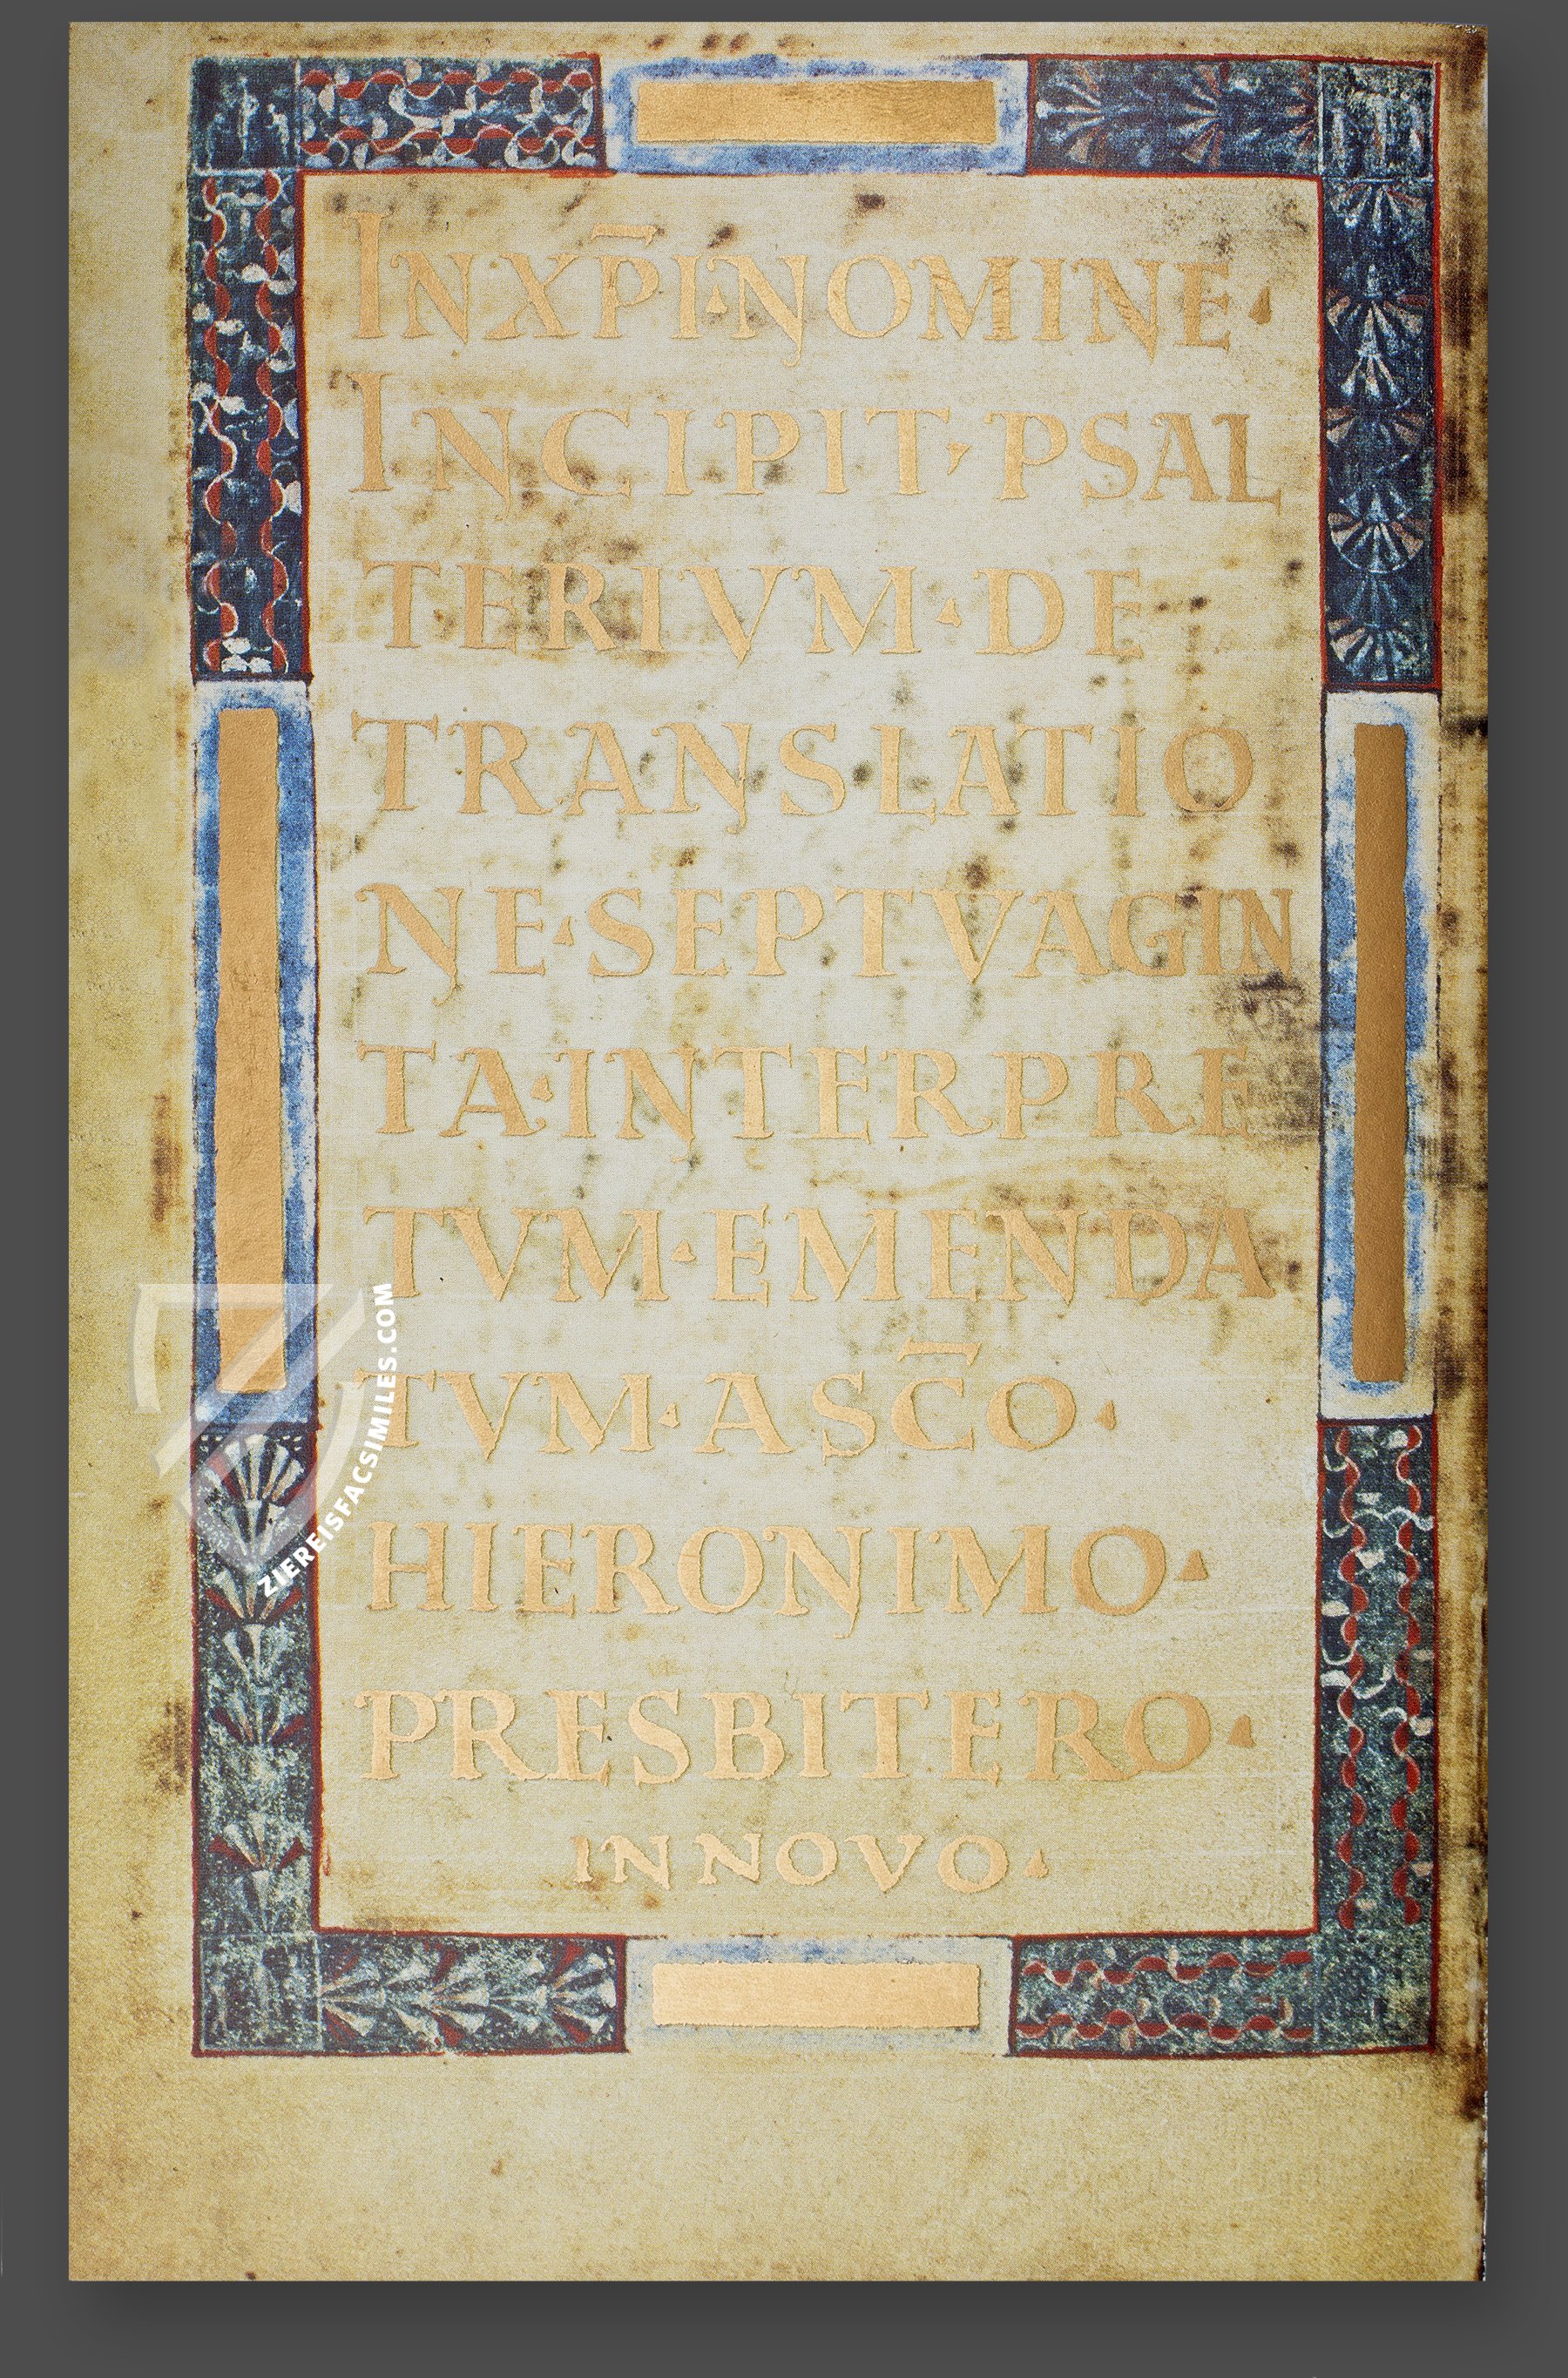 INXP̅I·NOMINE·
INCIPIT·PSAL
TERIVM·DE
TRANSLATIO
NE·SEPTVAGIN
TA·INTERPRE
TVM·EMENDA
TVM·A SC̅O·
HIERONIMO·
PRESBITERO·
INNOVO·
ZIEREISFACSIMILES.COM